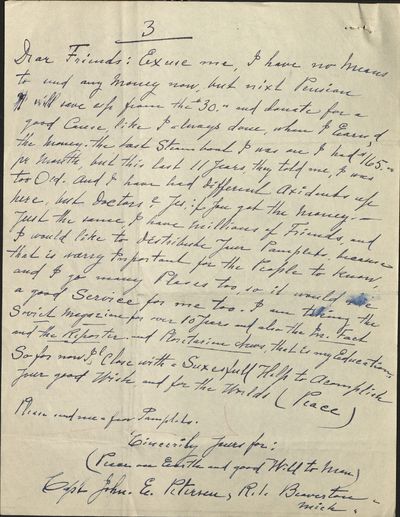 3
Dear Friends: Excuse me, I have no means
to send any Money now, but next Pension
I will save up from the 30.00 and donate for a
good Cause, like I always done, when I Earn'd
the money. the last Steamboat I was on I had $165.00
pr Month, but this last 11 Years, they told me, I was
too Old. And I have had different Axidents up
here, but Doctors & Yes; if you got the money.—
Just the same, I have Millions of Friends, and
I would like to Destribute Your Pamplets, because
that is warry Important for the People to know,
and I go many Places too, so it would
a good Service for me too. I am taking the
Soviet Magazine for over 10 Years and also the In. Fact
and the Reporter. and News, that is my Education,
So for now I'l Close with a Suxesfull Help to Acomplish
Your good Wish and for the Worlds (Peace)
Please send me a few Pamplets.
Sincerily Yours for:
(Peace on Earth and good Will to Men)
Capt John. E. Petersen, R.1. Beaverton
Mich.